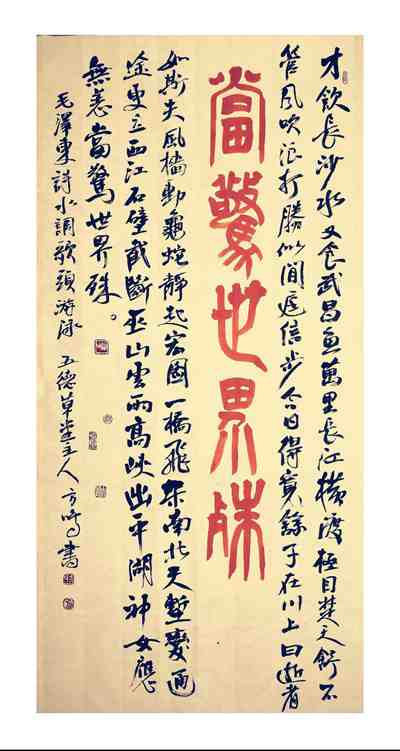 才飲長沙水又食武昌魚萬里長江橫渡極目楚天舒不
管風吹浪打勝似閒庭信步今日得寬餘子在川上曰逝者
當驚世界殊
如斯夫風檣動龜蛇靜起宏圖一橋飛架南北天塹變通
途更立西江石壁截斷巫山雲雨高峽出平湖神女應
無恙當驚世界殊。
毛澤東詩水調歌頭游泳 五德草堂主人方鳴書